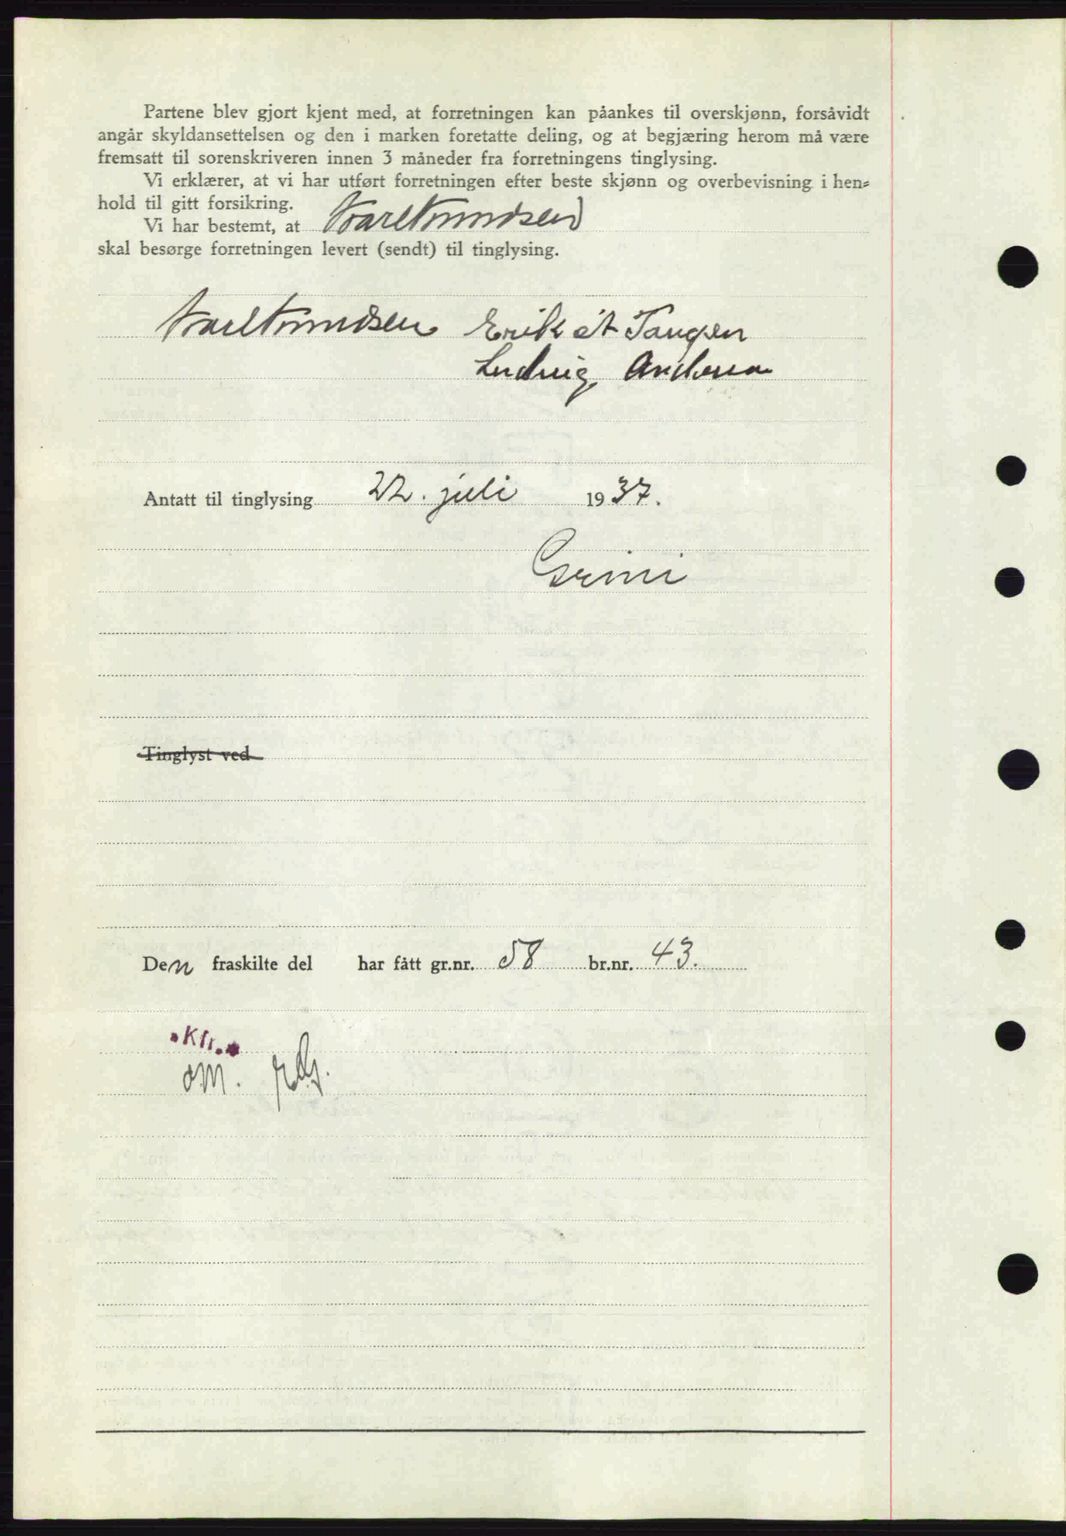 Partene blev gjort kjent med, at forretningen kan påankes til overskjønn, forsåvidt
angår skyldansettelsen og den i marken foretatte deling, og at begjæring herom må være
fremsatt til sorenskriveren innen 3 måneder fra forretningens tinglysing.
Vi erklærer, at vi har utført forretningen efter beste skjønn og overbevisning i hen=
hold til gitt forsikring.
Vi har bestemt, at
skal besørge forretningen levert (sendt) til tinglysing.
Erik Tangen
Ludvig
Antatt til tinglysing 22. juli 1937.
Grini
Tinglyst ved
Den fraskilte del har fått gr.nr. 58 br.nr. 43.
Kfr.
om.